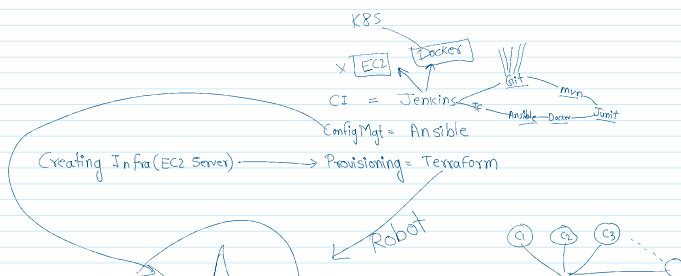 K8S
Docker
x EC2
Git
mvn
CI = Jenkins
Ansible Docker Junit
ConfigMgt = Ansible
Creating Infra (EC2 Server) Provisioning = Terraform
Robot
C1 C2 C3